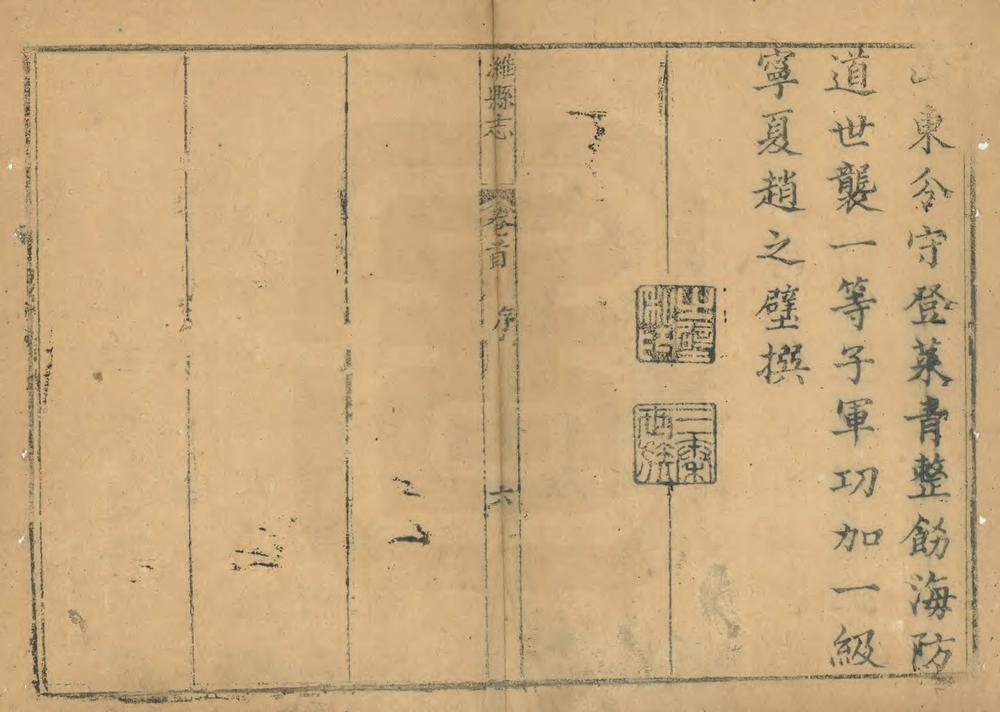 山東分守登萊青整飭海防
道世襲一等子軍功加一級
寧夏趙之璧撰
之璧
三秦世族
濰縣志
卷首
序
六